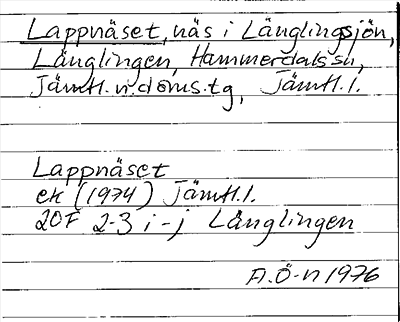 Lappnäset, näs i Länglingsjön,
Länglingen, Hammerdals sn,
Jämtl. n. doms.tg, Jämtl. l.
Lappnäset
ek (1974) Jämtl. l.
20F 2-3 i-j Länglingen
A.Ö-n 1976